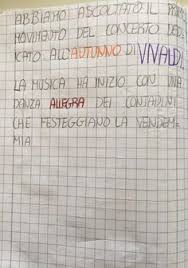 ABBIAMO ASCOLTATO IL PRIMO
MOVIMENTO DEL CONCERTO DEDI
CATO ALL'AUTUNNO DI VIVALDI
LA MUSICA HA INIZIO CON UNA
DANZA ALLEGRA DEI CONTADINI
CHE FESTEGGIANO LA VENDEM
MIA